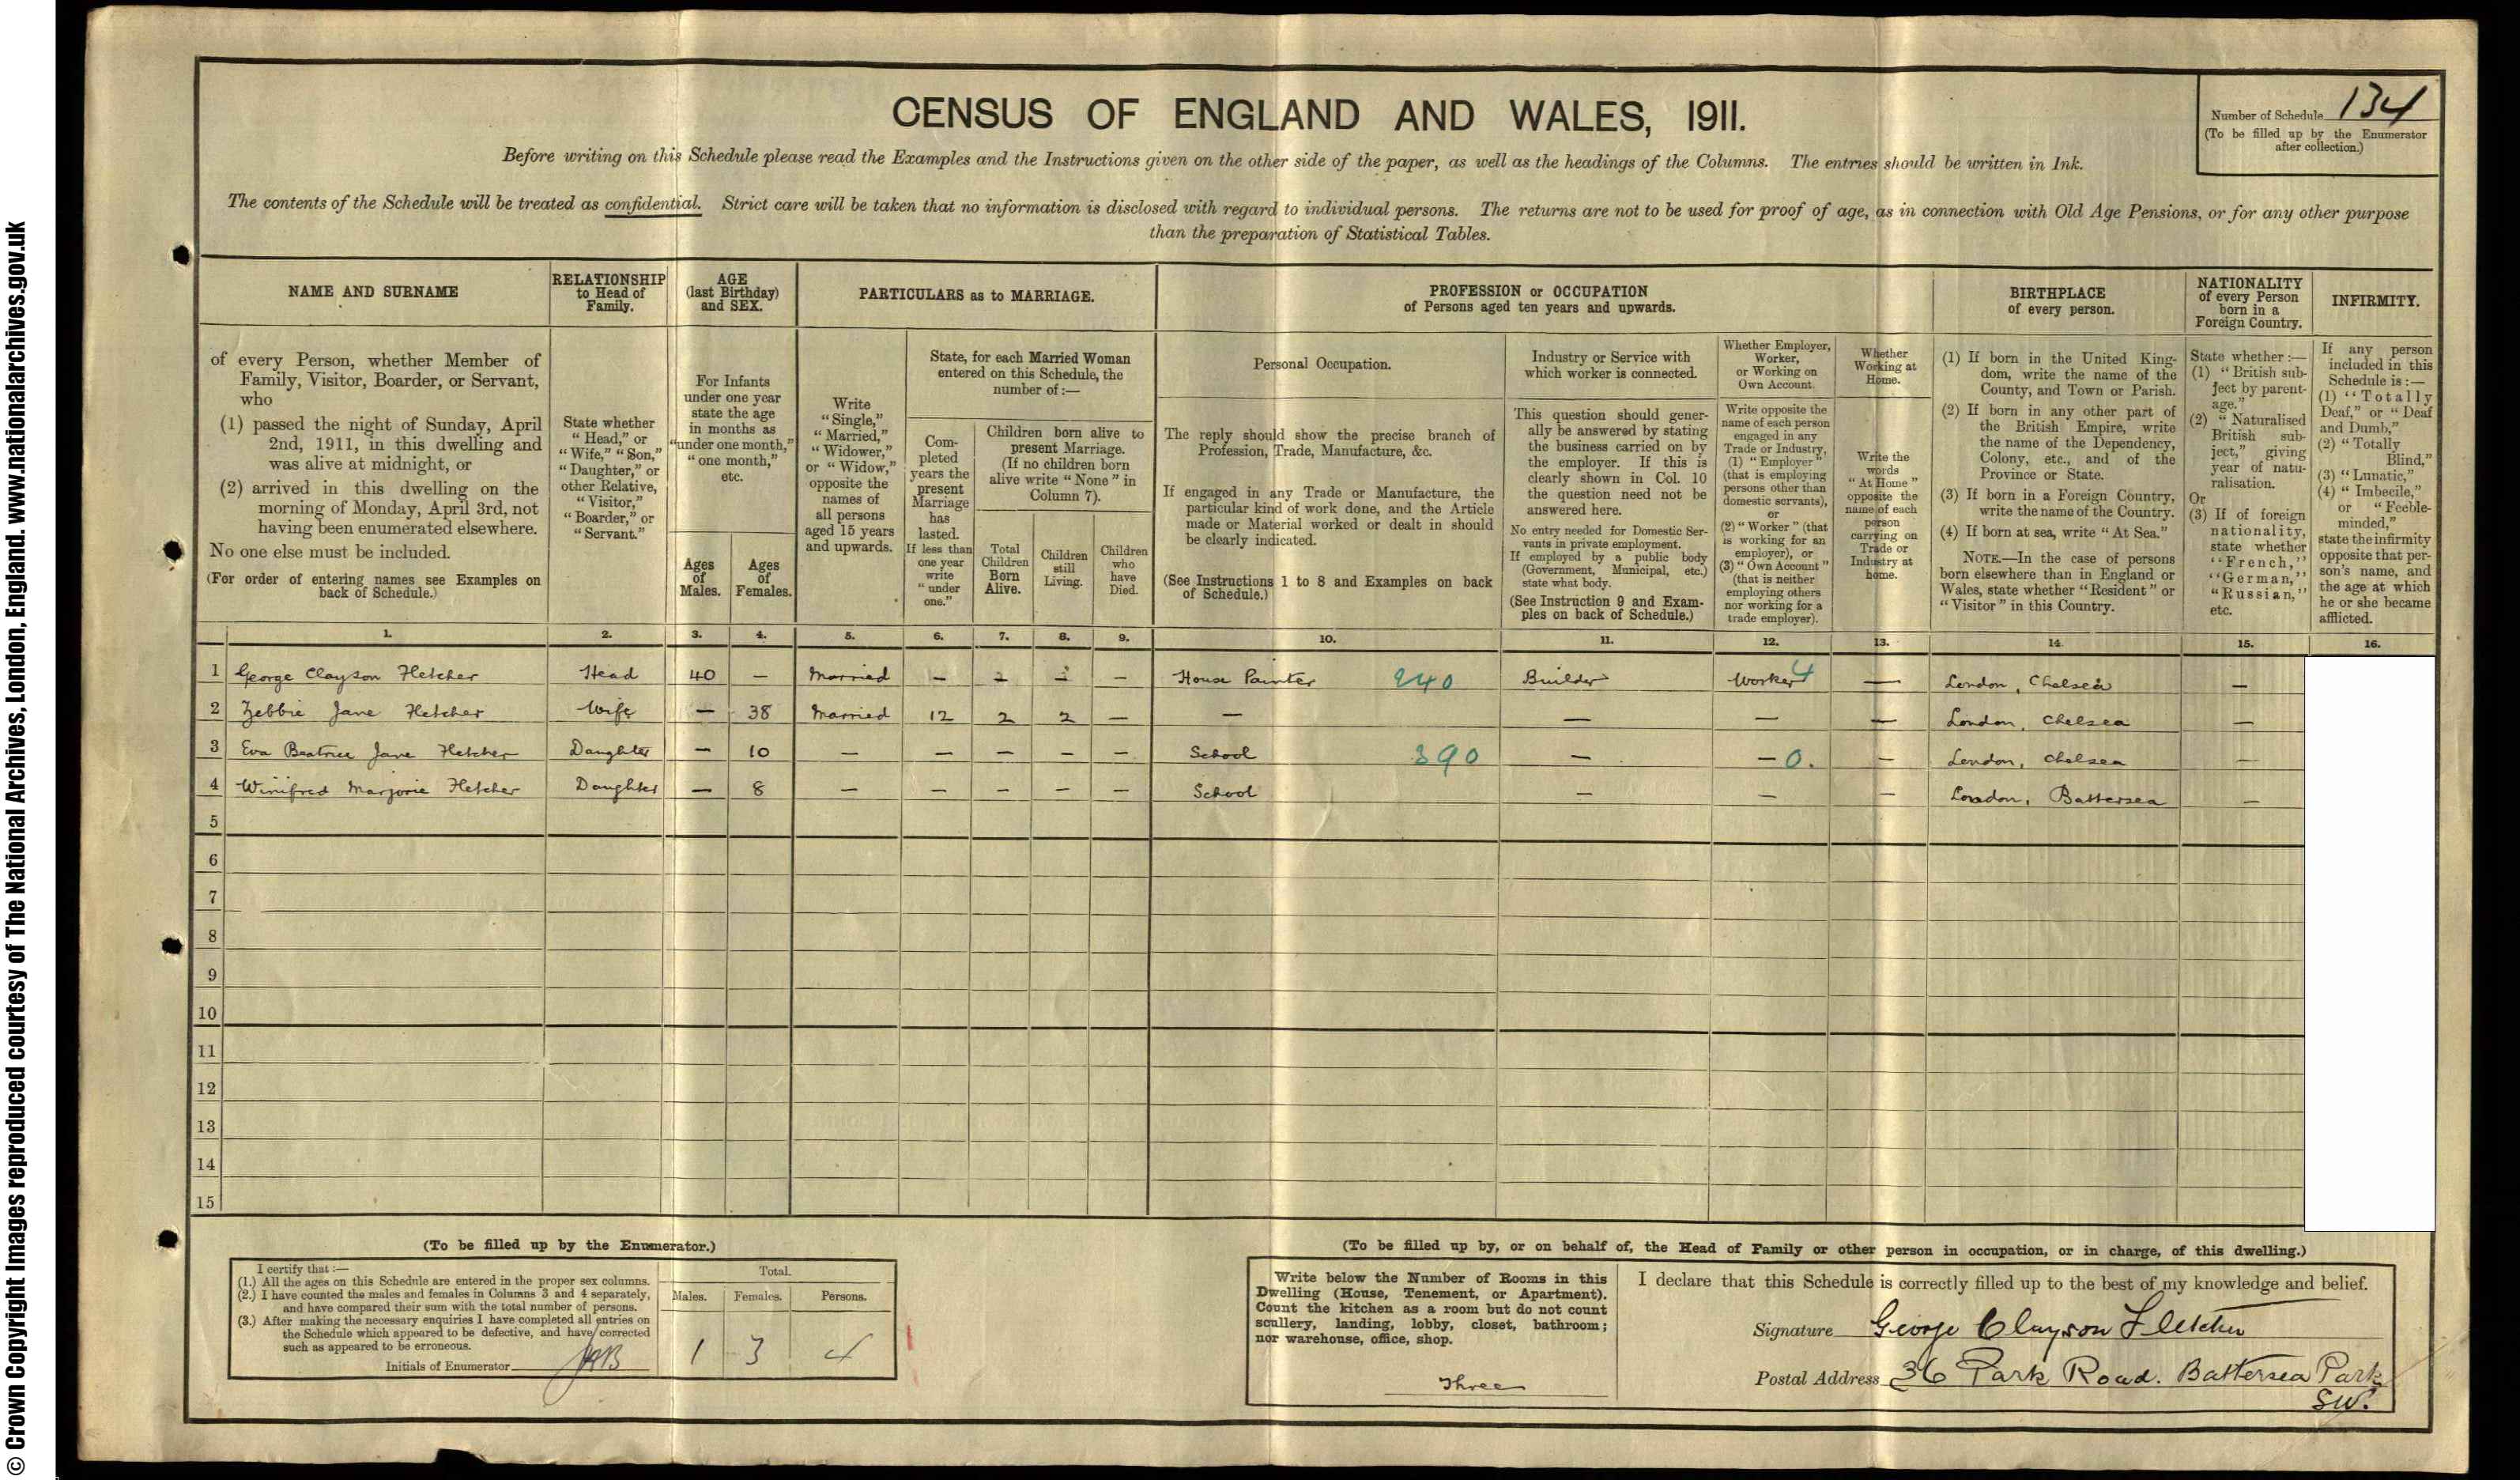 © Crown Copyright Images reproduced courtesy of The National Archives, London, England. www.nationalarchives.gov.uk
CENSUS OF ENGLAND AND WALES, 1911.
Number of Schedule 134
(To be filled up by the Enumerator
after collection.)
Before writing on this Schedule please read the Examples and the Instructions given on the other side of the paper, as well as the headings of the Columns. The entries should be written in Ink.
The contents of the Schedule will be treated as confidential. Strict care will be taken that no information is disclosed with regard to individual persons. The returns are not to be used for proof of age, as in connection with Old Age Pensions, or for any other purpose
than the preparation of Statistical Tables.
NAME AND SURNAME
of every Person, whether Member of
Family, Visitor, Boarder, or Servant,
who
(1) passed the night of Sunday, April
2nd, 1911, in this dwelling and
was alive at midnight, or
(2) arrived in this dwelling on the
morning of Monday, April 3rd, not
having been enumerated elsewhere.
No one else must be included.
(For order of entering names see Examples on
back of Schedule.)
RELATIONSHIP
to Head of
Family.
State whether
"Head," or
"Wife," "Son,"
"Daughter," or
other Relative,
"Visitor,"
"Boarder," or
"Servant."
AGE
(last Birthday)
and SEX.
For Infants
under one year
state the age
in months as
"under one month,"
"one month,"
etc.
Ages
of
Males.
Ages
of
Females.
PARTICULARS as to MARRIAGE.
Write
"Single,"
"Married,"
"Widower,"
or "Widow,"
opposite the
names of
all persons
aged 15 years
and upwards.
State, for each Married Woman
entered on this Schedule, the
number of :—
Com-
pleted
years the
present
Marriage
has
lasted.
If less than
one year
write
"under
one."
Children born alive to
present Marriage.
(If no children born
alive write "None" in
Column 7).
Total
Children
Born
Alive.
Children
still
Living.
Children
who
have
Died.
PROFESSION or OCCUPATION
of Persons aged ten years and upwards.
Personal Occupation.
The reply should show the precise branch of
Profession, Trade, Manufacture, &c.
If engaged in any Trade or Manufacture, the
particular kind of work done, and the Article
made or Material worked or dealt in should
be clearly indicated.
(See Instructions 1 to 8 and Examples on back
of Schedule.)
Industry or Service with
which worker is connected.
This question should gener-
ally be answered by stating
the business carried on by
the employer. If this is
clearly shown in Col. 10
the question need not be
answered here.
No entry needed for Domestic Ser-
vants in private employment.
If employed by a public body
(Government, Municipal, etc.)
state what body.
(See Instruction 9 and Exam-
ples on back of Schedule.)
Whether Employer,
Worker,
or Working on
Own Account.
Write opposite the
name of each person
engaged in any
Trade or Industry,
(1) "Employer"
(that is employing
persons other than
domestic servants),
or
(2) "Worker" (that
is working for an
employer), or
(3) "Own Account"
(that is neither
employing others
nor working for a
trade employer).
Whether
Working at
Home.
Write the
words
"At Home"
opposite the
name of each
person
carrying on
Trade or
Industry at
home.
BIRTHPLACE
of every person.
(1) If born in the United King-
dom, write the name of the
County, and Town or Parish.
(2) If born in any other part of
the British Empire, write
the name of the Dependency,
Colony, etc., and of the
Province or State.
(3) If born in a Foreign Country,
write the name of the Country.
(4) If born at sea, write "At Sea."
NOTE.—In the case of persons
born elsewhere than in England or
Wales, state whether "Resident" or
"Visitor" in this Country.
NATIONALITY
of every Person
born in a
Foreign Country.
State whether :—
(1) "British sub-
ject by parent-
age."
(2) "Naturalised
British sub-
ject," giving
year of natu-
ralisation.
Or
(3) If of foreign
nationality,
state whether
"French,"
"German,"
"Russian,"
etc.
INFIRMITY.
If any person
included in this
Schedule is :—
(1) "Totally
Deaf," or "Deaf
and Dumb,"
(2) "Totally
Blind,"
(3) "Lunatic,"
(4) "Imbecile,"
or "Feeble-
minded,"
state the infirmity
opposite that per-
son's name, and
the age at which
he or she became
afflicted.
1. 2. 3. 4. 5. 6. 7. 8. 9. 10. 11. 12. 13. 14. 15. 16.
1 George Clayson Fletcher Head 40 — Married — 2 2 — House Painter 240 Builder Worker 4 — London, Chelsea —
2 Zebbie Jane Fletcher Wife — 38 Married 12 2 2 — — — — — London, Chelsea —
3 Eva Beatrice Jane Fletcher Daughter — 10 — — — — — School 390 — — 0. — London, Chelsea —
4 Winifred Marjorie Fletcher Daughter — 8 — — — — — School — — — London, Battersea —
5
6
7
8
9
10
11
12
13
14
15
(To be filled up by the Enumerator.)
I certify that :—
(1.) All the ages on this Schedule are entered in the proper sex columns.
(2.) I have counted the males and females in Columns 3 and 4 separately,
and have compared their sum with the total number of persons.
(3.) After making the necessary enquiries I have completed all entries on
the Schedule which appeared to be defective, and have corrected
such as appeared to be erroneous.
Initials of Enumerator
Total.
Males. Females. Persons.
1 3 4
(To be filled up by, or on behalf of, the Head of Family or other person in occupation, or in charge, of this dwelling.)
Write below the Number of Rooms in this
Dwelling (House, Tenement, or Apartment).
Count the kitchen as a room but do not count
scullery, landing, lobby, closet, bathroom;
nor warehouse, office, shop.
Three
I declare that this Schedule is correctly filled up to the best of my knowledge and belief.
Signature George Clayson Fletcher
Postal Address 36 Park Road. Battersea Park
SW.